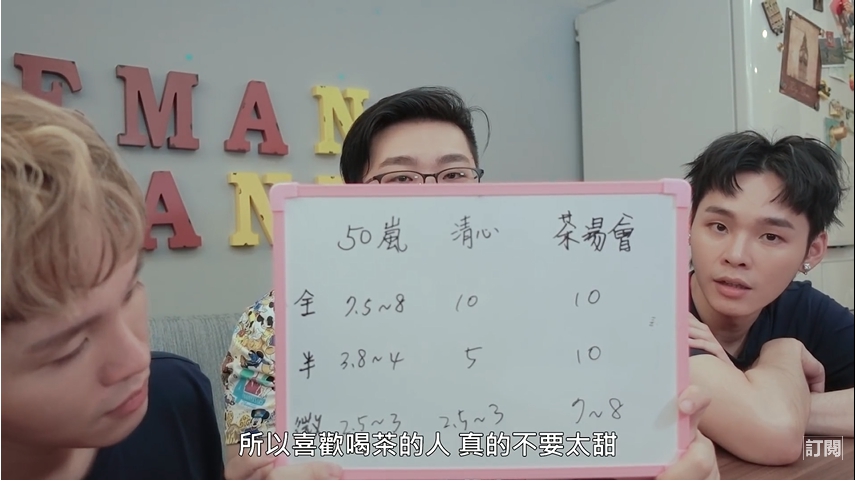 EMAN
50嵐 清心 茶湯會
全 7.5~8 10 10
半 3.8~4 5 10
微 2.5~3 2.5~3 7~8
所以喜歡喝茶的人 真的不要太甜
訂閱